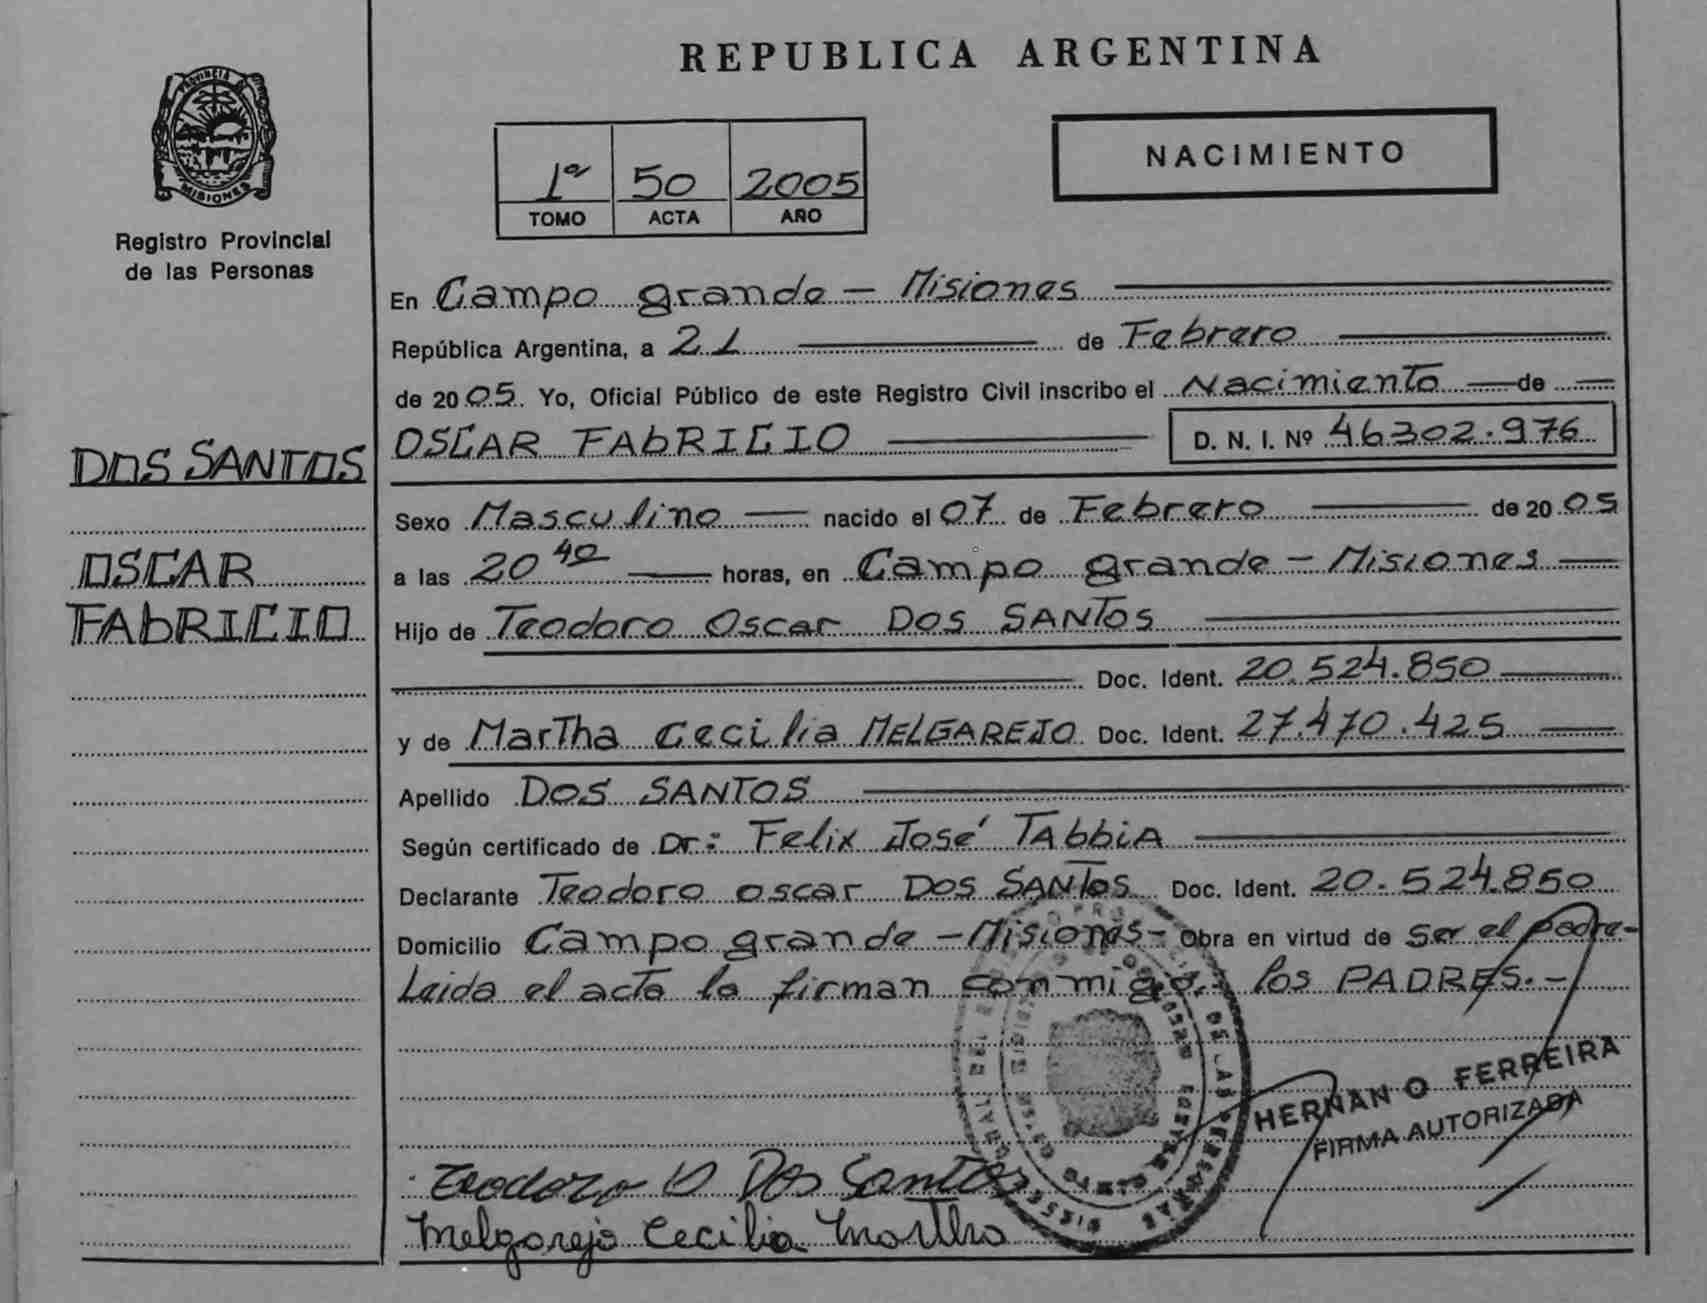 PROVINCIA DE
MISIONES
Registro Provincial
de las Personas
DOS SANTOS
OSCAR
FABRICIO
REPUBLICA ARGENTINA
1º 50 2005
TOMO ACTA AÑO
NACIMIENTO
En Campo grande - Misiones
República Argentina, a 21 de Febrero
de 2005. Yo, Oficial Público de este Registro Civil inscribo el Nacimiento de
OSCAR FAbRICIO D. N. I. Nº 46302.976
Sexo Masculino nacido el 07 de Febrero de 2005
a las 20 40 horas, en Campo grande - Misiones
Hijo de Teodoro Oscar DOS SANTOS
Doc. Ident. 20.524.850
y de Martha Cecilia MELGAREJO Doc. Ident. 27.470.425
Apellido DOS SANTOS
Según certificado de Dr: Felix José TAbbiA
Declarante Teodoro oscar DOS SANTOS Doc. Ident. 20.524.850
Domicilio Campo grande - Misiones - Obra en virtud de ser el padre-
Leida el acta la firman conmigo, los PADRES.-
HERNAN O FERREIRA
FIRMA AUTORIZADA
Teodoro O Dos Santos
Melgarejo Cecilia Martha